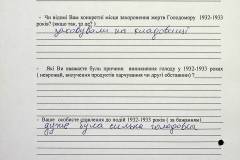 - Чи відомі Вам конкретні місця захоронення жертв Голодомору 1932-1933
років? (якщо так, то де? )
заховували на кладовищі
- Які Ви вважаєте були причини виникнення голоду у 1932-1933 роках
( неврожай, вилучення продуктів харчування чи другі обставини? )
- Ваше особисте ставлення до подій 1932-1933 років ( за бажанням)
дуже була сильна голодовка